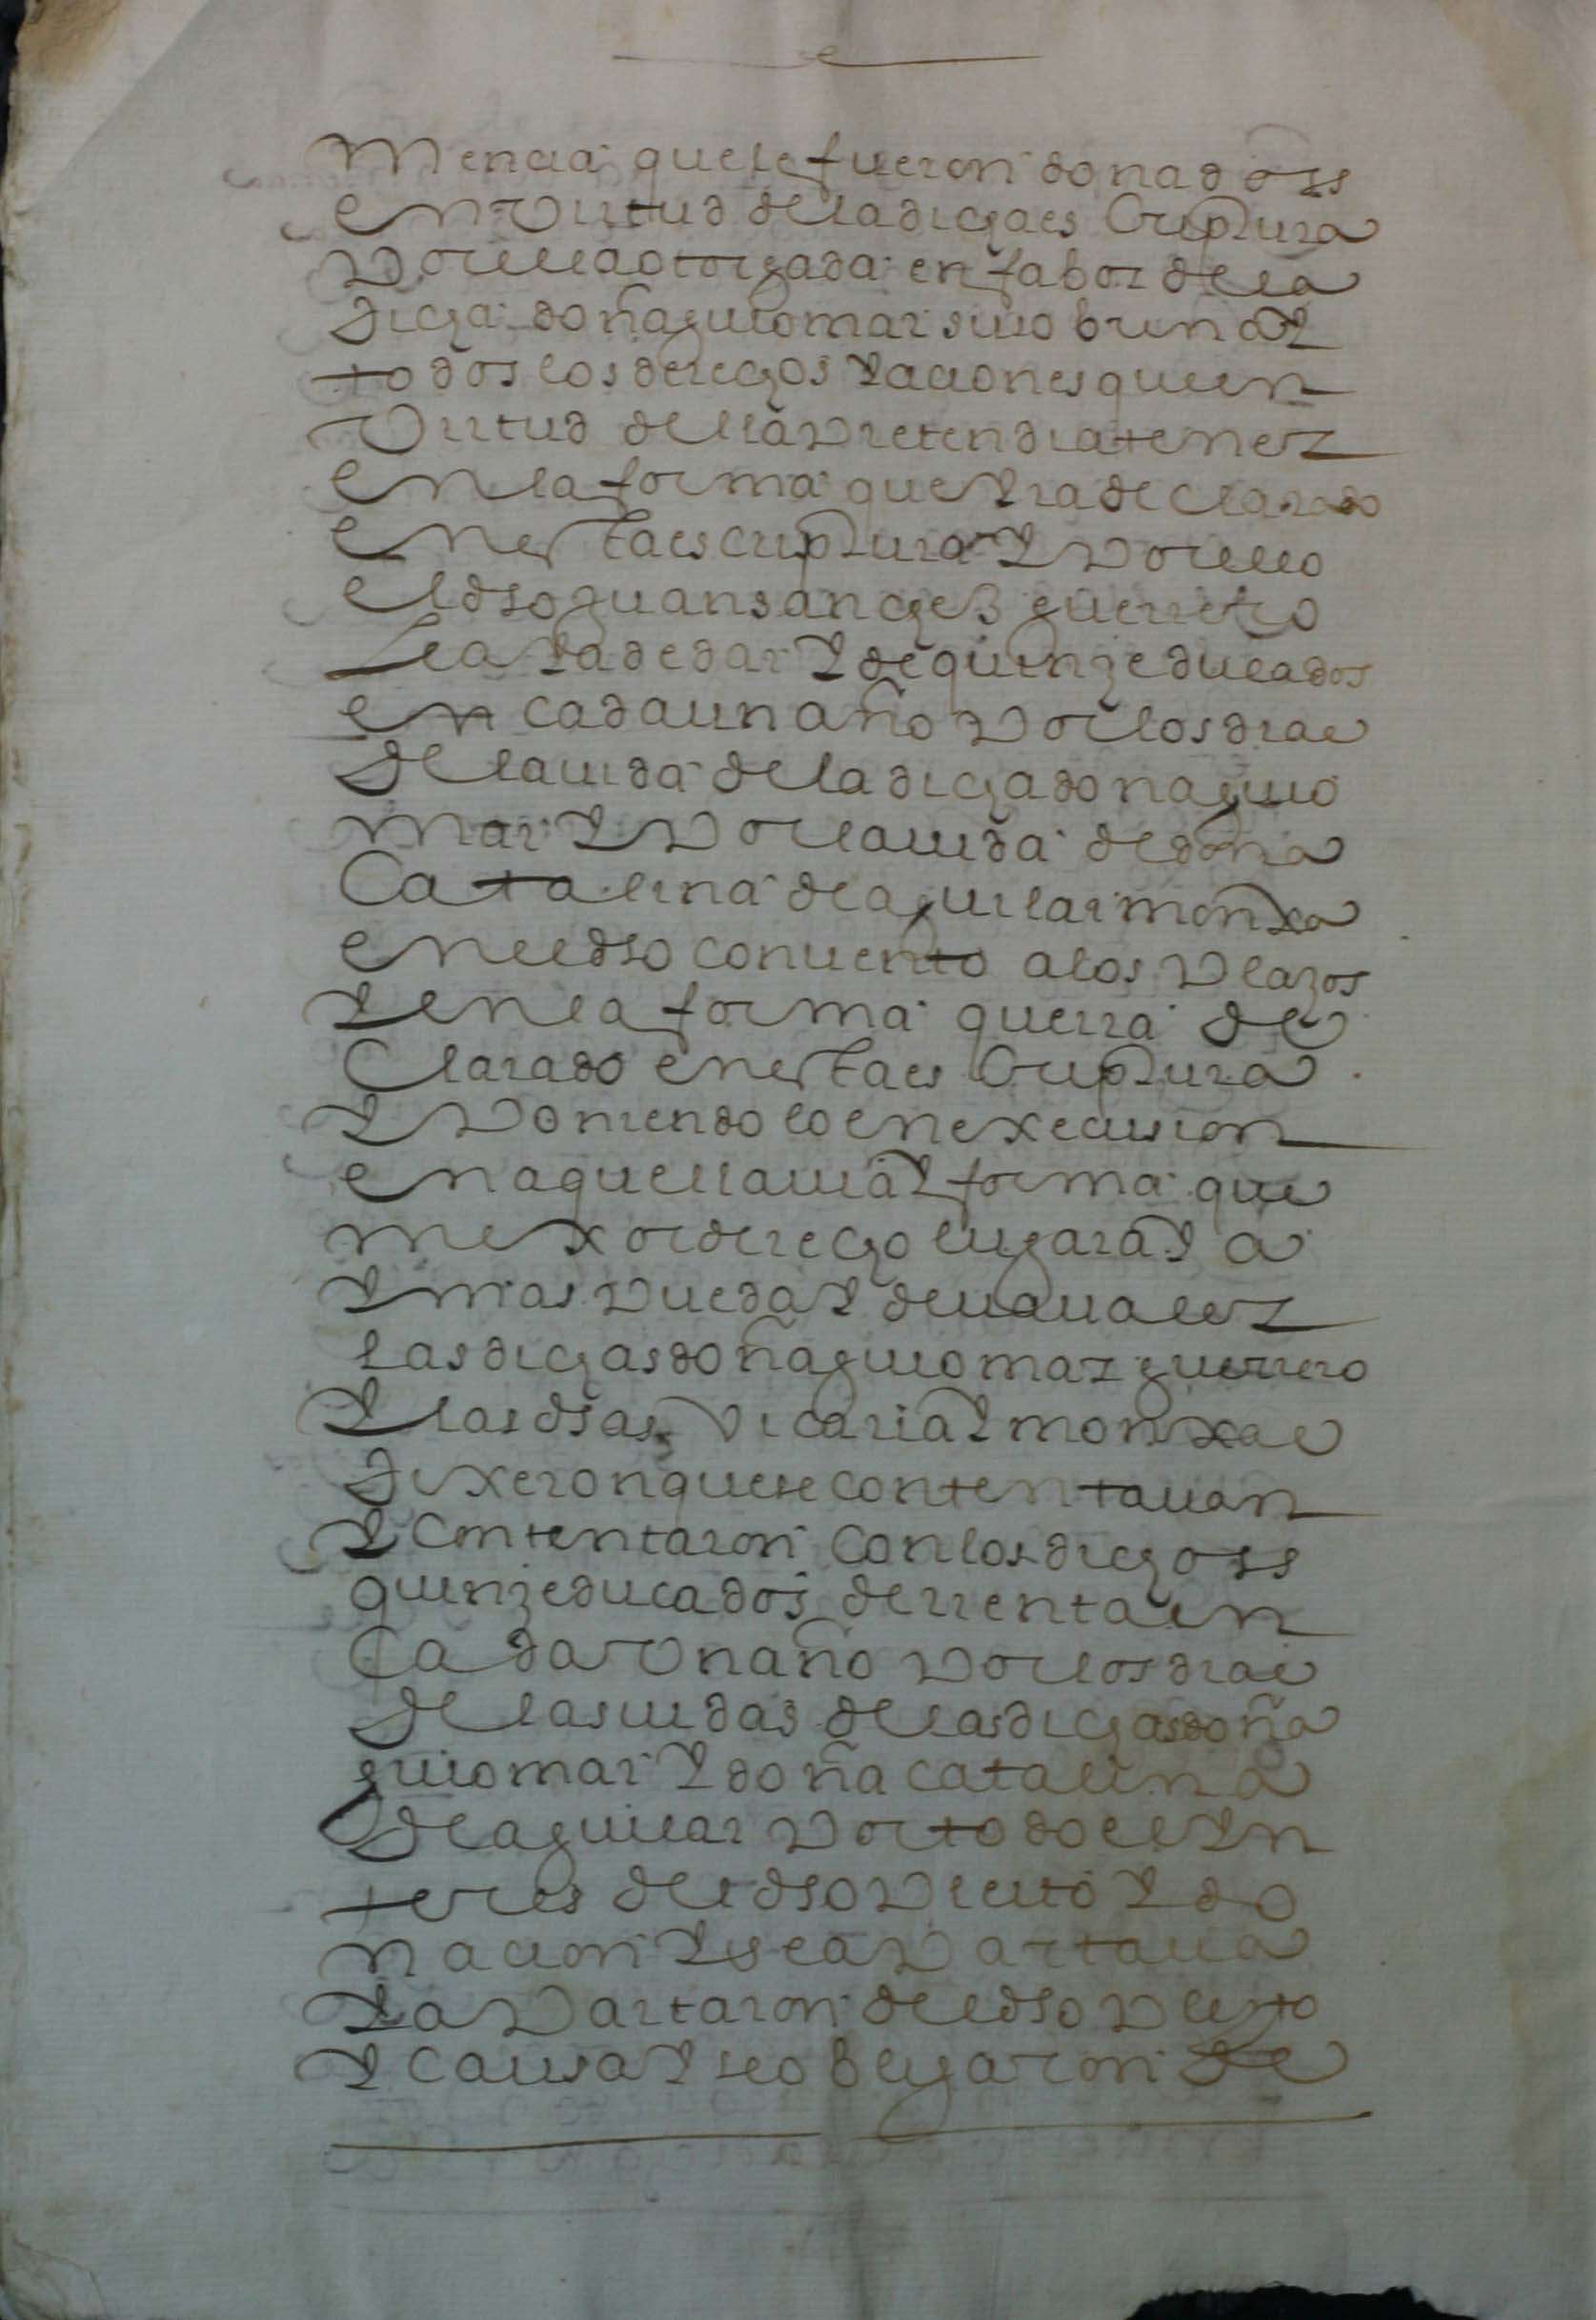 mencia que le fueron donadoss
en virtud de la dicha escriptura
por ella otorgada en fabor de la
dicha doña guiomar su sobrina y
todos los derechos y aciones que en
virtud della pretendia tener
en la forma que yra declarado
en esta escriptura y por ello
el dho juan sanchez guerrero
le a y a de dar y de quinze ducados
en cada un año por los dias
de la uida de la dicha doña guio
mar y por la uida de doña
Catalina de aguilar monxa
en el dho conuento a los plazos
y en la forma que yra de
Clarado en esta escriptura
y poniendolo en execusion
en aquella uia y forma que
mexor derecho lugar aya
y mas pueda y deua ualer
las dichas doña guiomar guerrero
y las dhas vicaria y monxas
dixeron que se contentauan
y contentaron con los dichoss
quinze ducados de rrenta en
Cada vn año por los dias
de las uidas de las dichas doña
guiomar y doña catalina
de aguilar por todo el yn
teres del dho pleito y do
nacion y se apartaua
y apartaron del dho pleito
y causa y se obligaron de